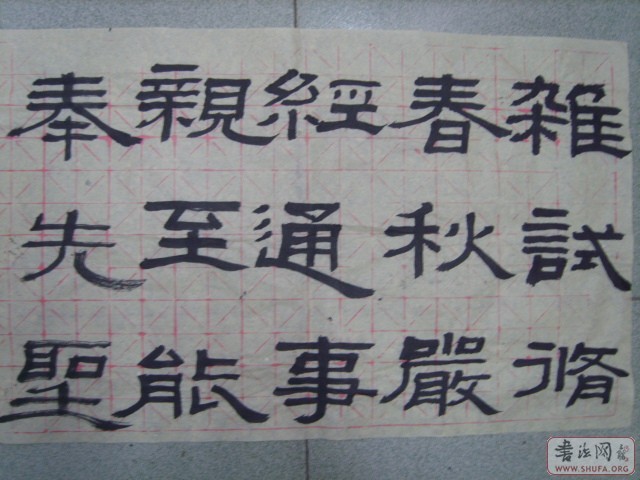 雜試脩
春秋嚴
經通事
親至能
奉先聖
書法网
WWW.SHUFA.ORG